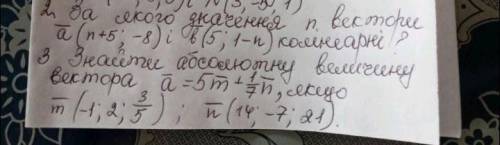 2. За якого значення n вектори
a̅(n+5; -8) і b̅(5; 1-n) колінеарні?
3 Знайти абсолютну величину
вектора a̅ = 5m̅ + 1/7 n̅, якщо
m̅(-1; 2; 3/5); n̅(14; -7; 21).